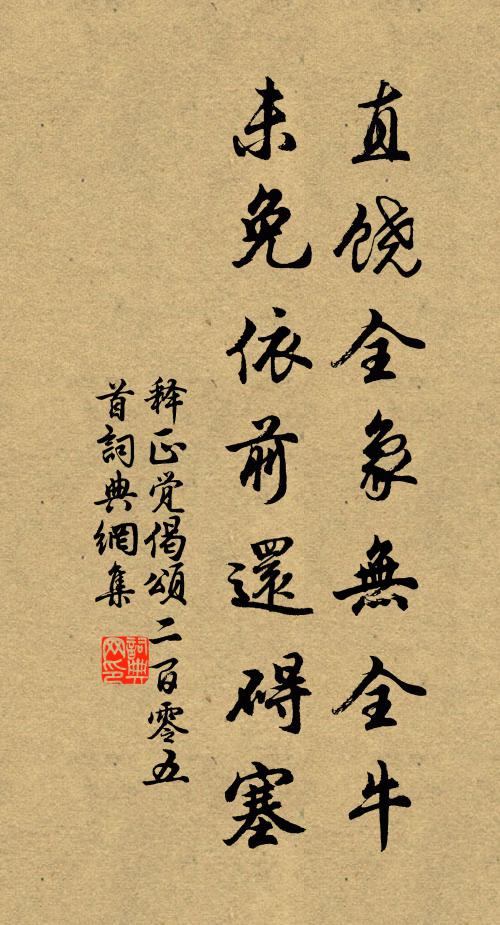 直饶全象無全牛
未免依前還碍塞
释正觉偈頌二百零五
首詞典網集
詞典
网印